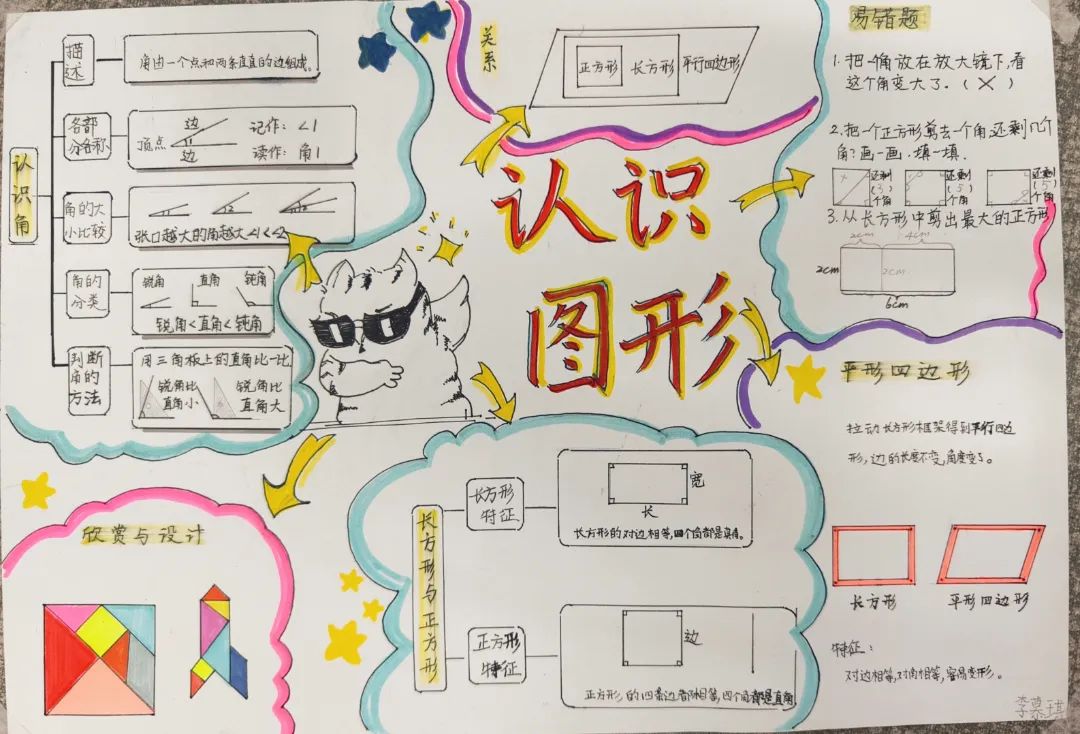 认识图形
认识角
描述
角由一个点和两条直直的边组成。
各部分名称
边
顶点
边
记作：∠1
读作：角1
角的大小比较
1
2
张口越大的角越大∠1<∠2
角的分类
锐角
直角
钝角
锐角<直角<钝角
判断角的方法
用三角板上的直角比一比
锐角比
直角小
钝角比
直角大
关系
正方形
长方形
平行四边形
易错题
1.把一角放在放大镜下,看
这个角变大了.(×)
2.把一个正方形剪去一个角,还剩几个
角?画一画.填一填.
还剩
(3)
个角
还剩
(5)
个角
还剩
(5)
个角
3.从长方形中剪出最大的正方形
2cm
4cm
2cm
2cm
6cm
平形四边形
拉动长方形框架得到平行四边
形,边的长度不变,角度变了。
长方形
平形四边形
特征：
对边相等,对角相等,容易变形。
欣赏与设计
长方形与正方形
长方形
特征
宽
长
长方形的对边相等,四个角都是直角。
正方形
特征
边
正方形的四条边都相等,四个角都是直角